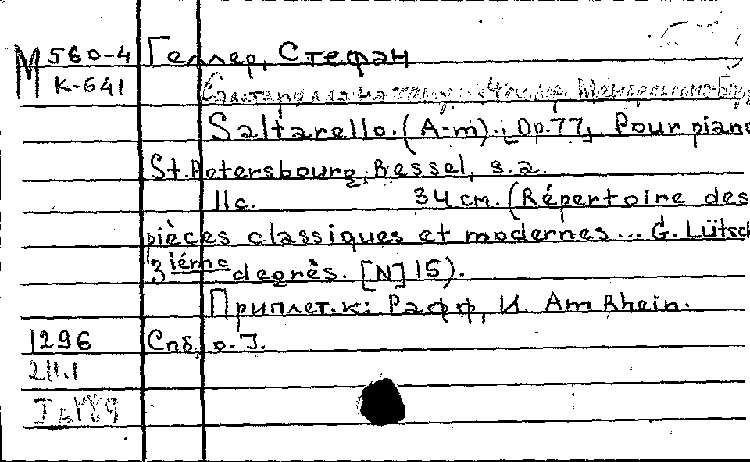 М 560-4 Геллер, Стефан
К-641
Saltarello. (A-m). [Op. 77] Pour piano
St. Petersbourg, Bessel, s.a.
11 с. 34 см. (Répertoire des
pièces classiques et modernes... G. Lütsch
3ième degrès. [N] 15).
Приплет. к: Рафф, И. Am Rhein.
1296 Спб, о. I.
211.1